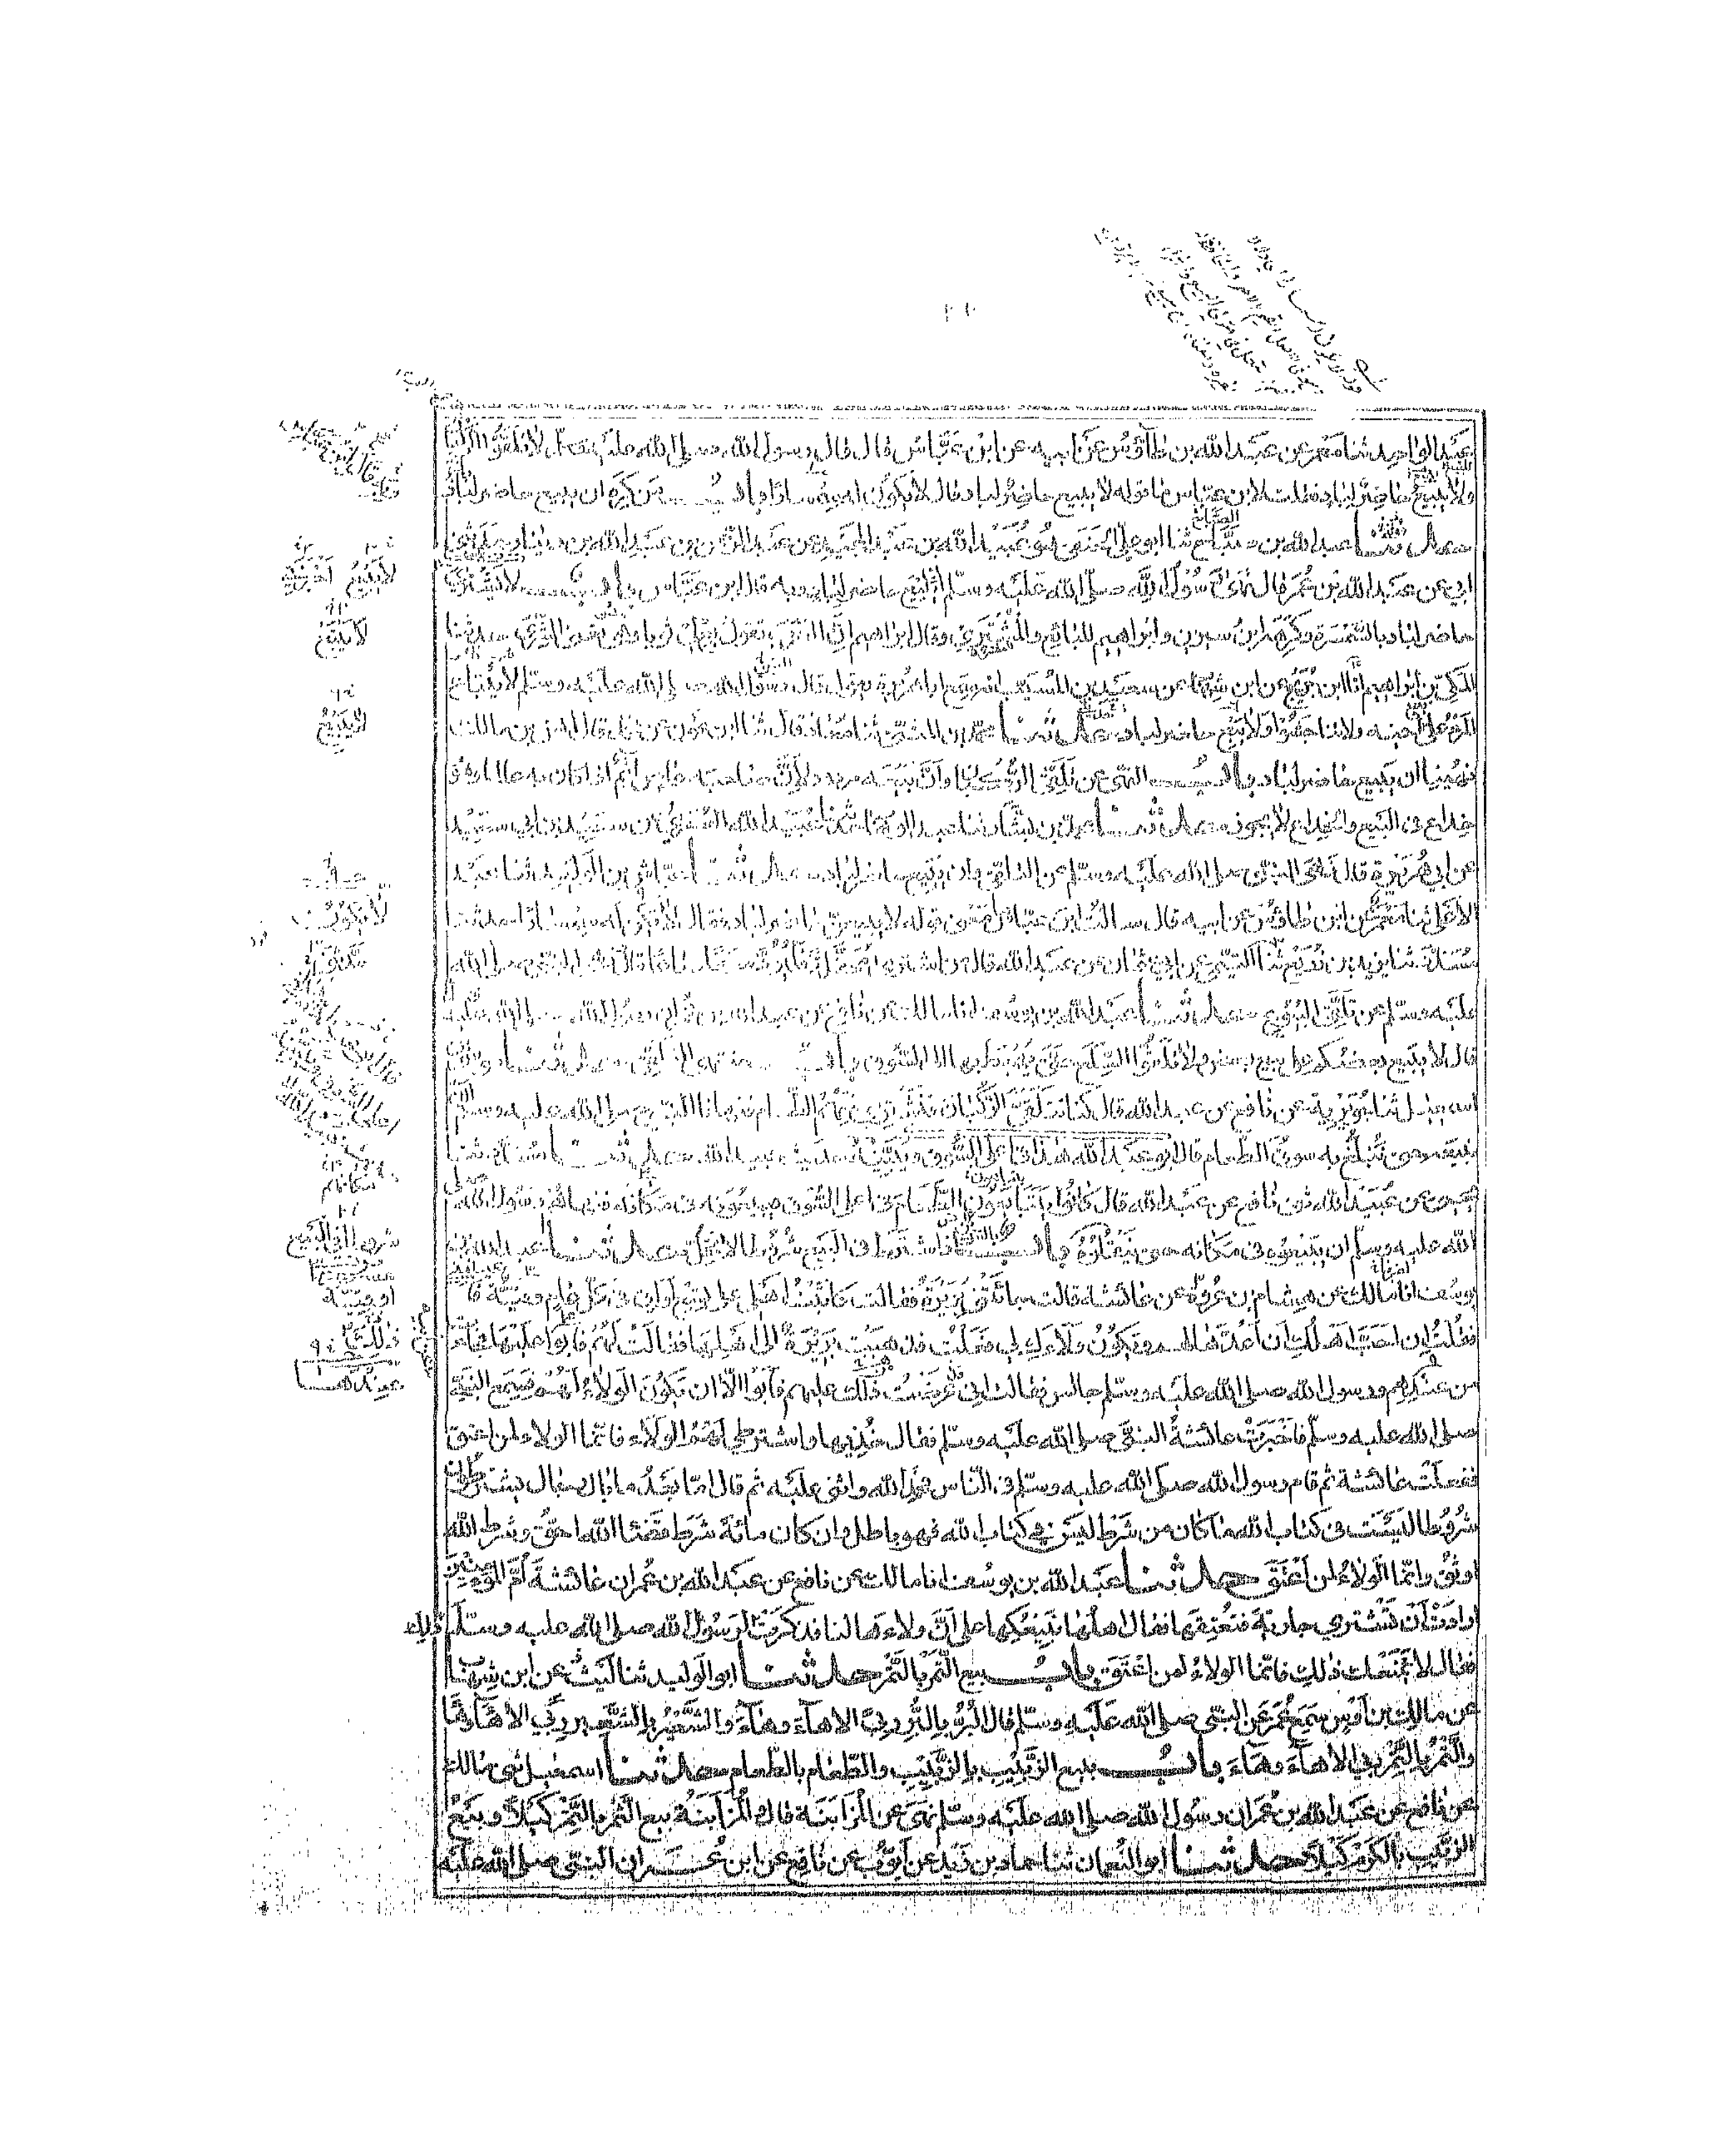 عبد الواحد ثنا معمر عن عبد الله بن طاوس عن ابيه عن ابن عباس قال قال رسول الله صلى الله عليه وسلم لا تلقوا الركبان
ولا يبيع حاضر لباد فقلت لابن عباس ما قوله لا يبيع حاضر لباد قال لا يكون له سمسارا باب من كره ان يبيع حاضر لباد
حدثنا عبد الله بن صباح ثنا ابو علي الحنفي هو عبيد الله بن عبد المجيد عن عبد الرحمن بن عبد الله بن دينار حدثني
ابي عن عبد الله بن عمر قال نهى رسول الله صلى الله عليه وسلم ان يبيع حاضر لباد وبه قال ابن عباس باب لا يشتري
حاضر لباد بالسمسرة وكرهه ابن سيرين وابراهيم للبائع والمشتري وقال ابراهيم ان العرب تقول بع لي ثوبا وهو يعني الشرى حدثنا
المكي بن ابراهيم انا ابن جريج عن ابن شهاب عن سعيد بن المسيب انه سمع ابا هريرة يقول قال رسول الله صلى الله عليه وسلم لا يبتاع
المرء على بيع اخيه ولا تناجشوا ولا يبيع حاضر لباد حدثنا محمد بن المثنى ثنا معاذ قال ثنا ابن عون عن محمد قال انس بن مالك
نهينا ان يبيع حاضر لباد باب النهي عن تلقي الركبان وان بيعه مردود لان صاحبه عاص اثم اذا كان به عالما وهو
خداع في البيع والخداع لا يجوز حدثنا محمد بن بشار ثنا عبد الوهاب ثنا عبيد الله العمري عن سعيد بن ابي سعيد
عن ابي هريرة قال نهى النبي صلى الله عليه وسلم عن التلقي وان يبيع حاضر لباد حدثنا عياش بن الوليد ثنا عبد
الاعلى ثنا معمر عن ابن طاوس عن ابيه قال سالت ابن عباس ما معنى قوله لا يبيعن حاضر لباد فقال لا يكون له سمسارا حدثنا
مسدد ثنا يزيد بن زريع ثنا التيمي عن ابي عثمان عن عبد الله قال من اشترى محفلة فليرد معها صاعا قال ونهى النبي صلى الله
عليه وسلم عن تلقي البيوع حدثنا عبد الله بن يوسف انا مالك عن نافع عن عبد الله بن عمر ان رسول الله صلى الله عليه
قال لا يبيع بعضكم على بيع بعض ولا تلقوا السلع حتى يهبط بها الى السوق باب منتهى التلقي حدثنا موسى بن
اسمعيل ثنا جويرية عن نافع عن عبد الله قال كنا نتلقى الركبان فنشتري منهم الطعام فنهانا النبي صلى الله عليه وسلم ان
نبيعه حتى نبلغ به سوق الطعام قال ابو عبد الله هذا في اعلى السوق ويبينه حديث عبيد الله حدثنا مسدد ثنا
يحيى عن عبيد الله ثني نافع عن عبد الله قال كانوا يتبايعون الطعام في اعلى السوق فيبيعونه في مكانه فنهاهم رسول الله صلى
الله عليه وسلم ان يبيعوه في مكانه حتى ينقلوه باب اذا اشترط في البيع شروطا لا تحل حدثنا عبد الله بن
يوسف انا مالك عن هشام بن عروة عن عائشة قالت جاءتني بريرة فقالت كاتبت اهلي على تسع اواق في كل عام وقية
فقلت ان احب اهلك ان اعدها لهم ويكون ولاءك لي فعلت فذهبت بريرة الى اهلها فقالت لهم فابوا عليها فجاءت
من عندهم ورسول الله صلى الله عليه وسلم جالس فقالت اني عرضت ذلك عليهم فابوا الا ان يكون الولاء لهم فسمع النبي
صلى الله عليه وسلم فاخبرت عائشة النبي صلى الله عليه وسلم فقال خذيها واشترطي لهم الولاء فانما الولاء لمن اعتق
ففعلت عائشة ثم قام رسول الله صلى الله عليه وسلم في الناس فحمد الله واثنى عليه ثم قال اما بعد ما بال رجال يشترطون
شروطا ليست في كتاب الله ما كان من شرط ليس في كتاب الله فهو باطل وان كان مائة شرط قضاء الله احق وشرط الله
اوثق وانما الولاء لمن اعتق حدثنا عبد الله بن يوسف انا مالك عن نافع عن عبد الله بن عمر ان عائشة ام المؤمنين
ارادت ان تشتري جارية فتعتقها فقال اهلها نبيعكها على ان ولاءها لنا فذكرت لرسول الله صلى الله عليه وسلم ذلك
فقال لا يمنعك ذلك فانما الولاء لمن اعتق باب بيع التمر بالتمر حدثنا ابو الوليد ثنا ليث عن ابن شهاب
عن مالك بن اوس سمع عمر عن النبي صلى الله عليه وسلم قال البر بالبر ربى الا هاء وهاء والشعير بالشعير ربى الا هاء وهاء
والتمر بالتمر ربى الا هاء وهاء باب بيع الزبيب بالزبيب والطعام بالطعام حدثنا اسمعيل ثني مالك
عن نافع عن عبد الله بن عمر ان رسول الله صلى الله عليه وسلم نهى عن المزابنة قال والمزابنة بيع الثمر بالتمر كيلا وبيع
الزبيب بالكرم كيلا حدثنا ابو النعمان ثنا حماد بن زيد عن ايوب عن نافع عن ابن عمر ان النبي صلى الله عليه